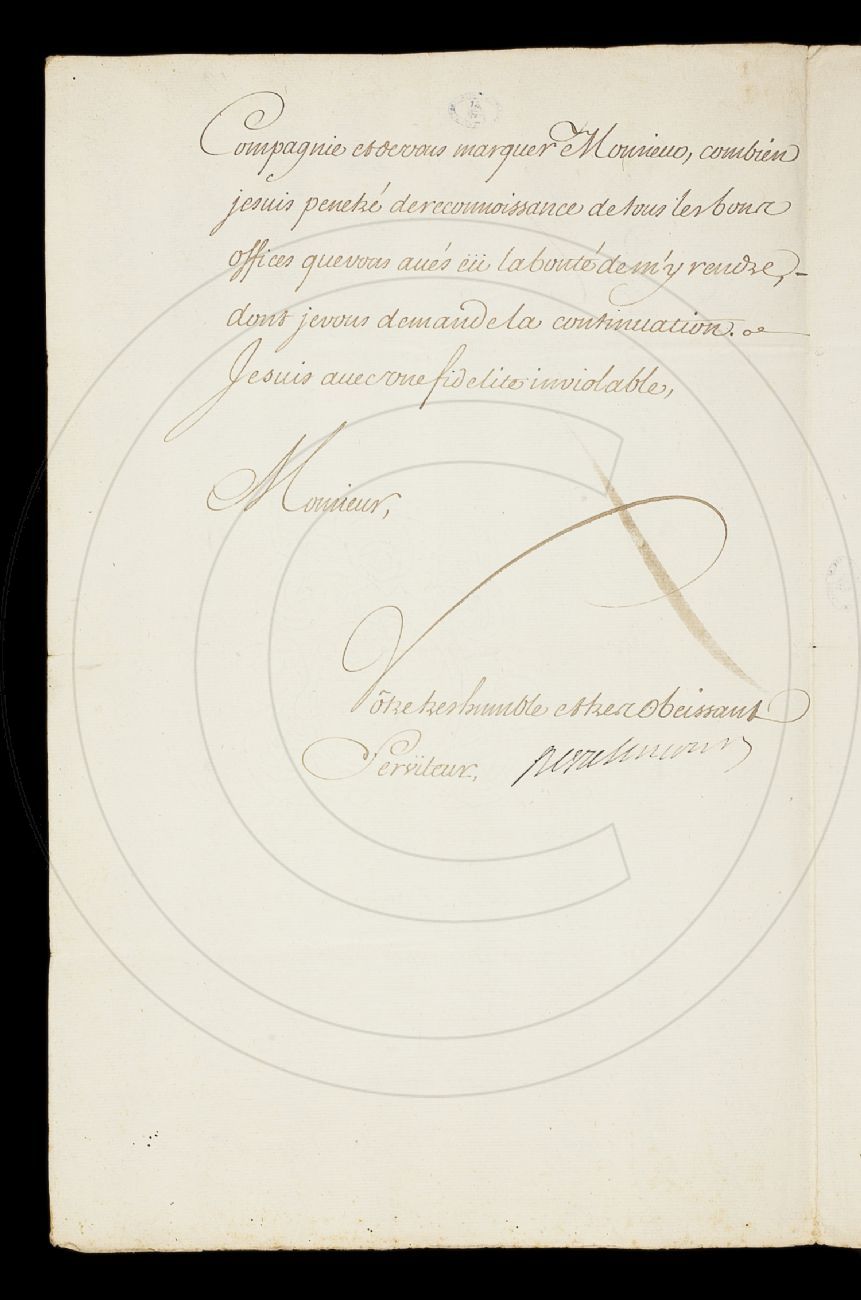 Compagnie et de vous marquer Monsieur, combien
je suis penetré de reconnoissance de tous les bons
offices que vous aués eü la bonté de m'y rendre,
dont je vous demande la continuation.
Je suis auec vne fidelité inviolable,
Monsieur,
Vôtre tres humble et tres obeissant
Serviteur,